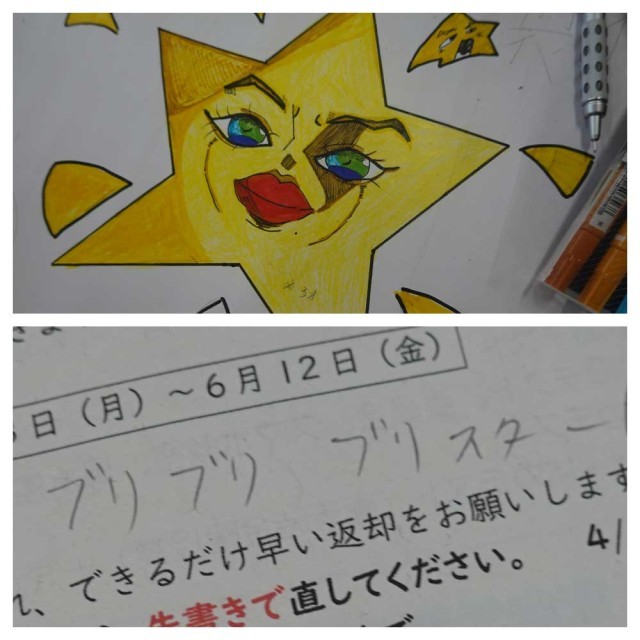 日（月）～６月１２日（金）
ブリブリ ブリスター
れ、できるだけ早い返却をお願いします
4/
先書きで直してください。